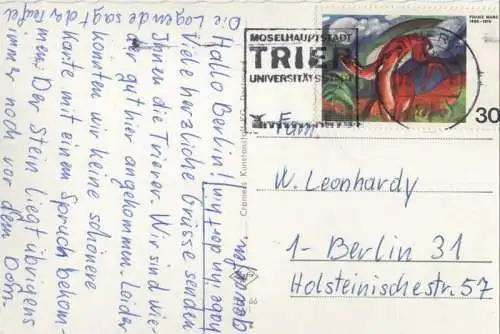 Hallo Berlin!
Viele herzliche Grüsse senden
Ihnen die Trierer. Wir sind wie-
der gut hier angekommen. Leider
konnten wir keine schönere
Karte mit einem Spruch bekom-
men. Der Stein liegt übrigens
immer noch vor dem Dom.
Die Legende sagt da
habe ihn dort hin
geworfen
Cramers Kunstanstalt KG,
66
MOSELHAUPTSTADT
TRIER
UNIVERSITÄTSSTADT
FRANZ MARC
30
Fam.
W. Leonhardy
1-Berlin 31
Holsteinischestr. 57